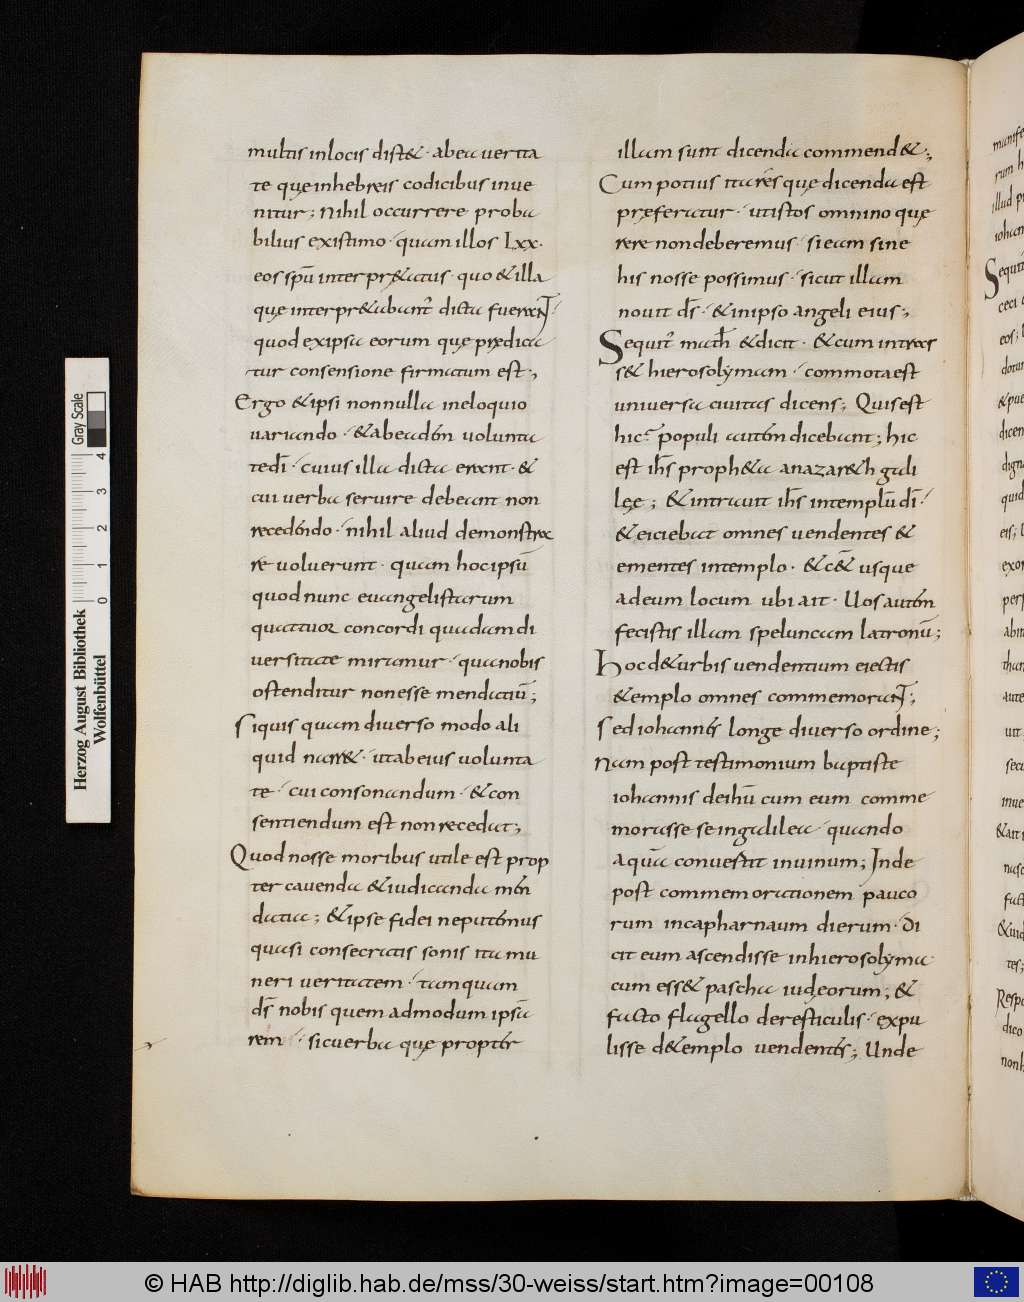 multis inlocis dist&· abea uerita
te quę inhebreis codicibus inue
nitur; Nihil occurrere proba
bilius existimo· quam illos Lxx·
eos spū interpr&atus· quo &illa
quę interpr&abant᷑ dicta fuerant·
quod exipsa eorum quę prędica
tur consensione firmatum est·,
Ergo &ipsi nonnulla ineloquio
uariando· &abeadēm volunta
tedī· cuius illa dicta erant· &
cui verba seruire debeant non
recedēndo· nihil aliud demonstra
re uoluerunt· quam hoc ipsū
quod nunc euangelistarum
quattuor concordi quadam di
uersitate miramur· qua nobis
ostenditur non esse mendatiū;
Siquis quam diuerso modo ali
quid narr&· utabeius uolunta
te· cui consonandum· &con
sentiendum est non recedat;
Quod nosse moribus utile est prop
ter cauenda &iudicanda mēn
datia; &ipse fidei neputēmus
quasi consecratis sonis ita mu
neri ueritatem· tamquam
dš nobis quem admodum ipsā
rem· sicuerba quę proptēr
illam sunt dicenda commend&·,
Cum potius ita rēs quę dicenda est
pręferatur· utistos omnino quę
rere non deberemus· si eam sine
his nosse possimus· sicut illam
nouit dš· &inipso angeli eius;
Sequit᷑ math̄ &dicit· &cum intras
s& hierosolymam· commota est
uniuersa ciuitas dicens; Quis est
hic? populi autēm dicebant; hic
est ih̄s proph&a anazar&h gali
lęe; &intrauit ih̄s intemplū dī·
&eiciebat omnes uendentes &
ementes intemplo· &c& usque
adeum locum ubi ait· Uos autēm
fecistis illam speluncam latronū;
Hoc d&urbis uendentium eiectis
&emplo omnes commemorant;
Sed iohannēs longe diuerso ordine;
Nam post testimonium baptiste
iohannis deihū cum eum comme
morasse se ingalilea· quando
aquā conuestit inuinum; Inde
post commemorationem pauco
rum incapharnaum dierum· di
cit eum ascendisse inhierosolyma·
cum ess& pascha iudęorum; &
facto flagello deresticulis· expu
lisse d&emplo uendentēs; Unde
manife
rum h
illud p
iohan
Sequit
ceci
eos;
&pue
dicen
quid
eis;
exor
aute
uit
secu
inue
&ait
nasc
&uid
tes;
Respo
dico
non h
Gray Scale
0 1 2 3 4
Herzog August Bibliothek
Wolfenbüttel
© HAB http://diglib.hab.de/mss/30-weiss/start.htm?image=00108